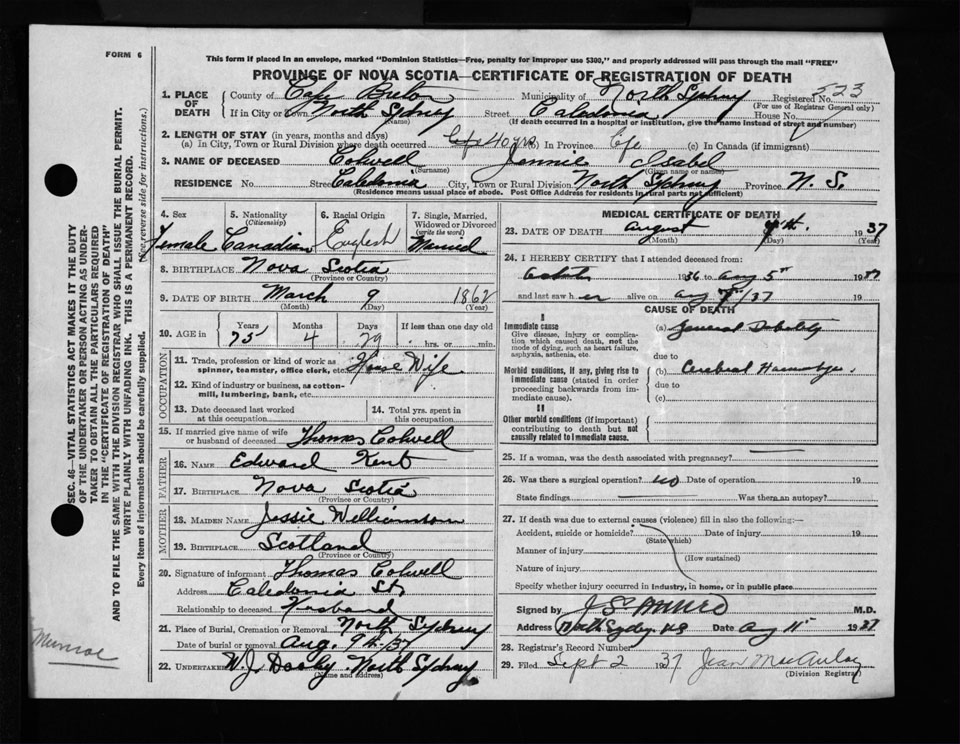 FORM 6
This form if placed in an envelope, marked "Dominion Statistics—Free, penalty for improper use $300," and properly addressed will pass through the mail "FREE"
PROVINCE OF NOVA SCOTIA—CERTIFICATE OF REGISTRATION OF DEATH
1. PLACE OF DEATH County of Cape Breton Municipality of North Sydney Registered No. 523
(For use of Registrar General only)
If in City or Town North Sydney Street Caledonia House No.
(Name) (If death occurred in a hospital or institution, give the name instead of street and number)
2. LENGTH OF STAY (in years, months and days)
(a) In City, Town or Rural Division where death occurred 40 yrs (b) In Province Life (c) In Canada (if immigrant)
3. NAME OF DECEASED Colwell Jennie Isabel
(Surname) (Given name or names)
RESIDENCE No. Street Caledonia City, Town or Rural Division North Sydney Province N. S.
(Residence means usual place of abode. Post Office Address for residents in rural parts not sufficient)
4. Sex 5. Nationality (Citizenship) 6. Racial Origin 7. Single, Married, Widowed or Divorced (write the word)
Female Canadian English Married
8. BIRTHPLACE Nova Scotia
(Province or Country)
9. DATE OF BIRTH March 9 1862
(Month) (Day) (Year)
10. AGE in Years Months Days If less than one day old
75 4 29 hrs. or min.
OCCUPATION
11. Trade, profession or kind of work as spinner, teamster, office clerk, etc. House Wife
12. Kind of industry or business, as cotton-mill, lumbering, bank, etc.
13. Date deceased last worked at this occupation
14. Total yrs. spent in this occupation
15. If married give name of wife or husband of deceased Thomas Colwell
FATHER
16. NAME Edward Kent
17. BIRTHPLACE Nova Scotia
(Province or Country)
MOTHER
18. MAIDEN NAME Jessie Williamson
19. BIRTHPLACE Scotland
(Province or Country)
20. Signature of informant Thomas Colwell
Address Caledonia St.
Relationship to deceased Husband
21. Place of Burial, Cremation or Removal North Sydney
Date of burial or removal Aug. 9th/37
22. UNDERTAKER W. J. Dooley North Sydney
(Name and address)
MEDICAL CERTIFICATE OF DEATH
23. DATE OF DEATH August 7th. 1937
(Month) (Day) (Year)
24. I HEREBY CERTIFY that I attended deceased from:
1936 to Aug 5th 1937
and last saw h er alive on Aug /37 19
CAUSE OF DEATH
I
Immediate cause
Give disease, injury or complication which caused death, not the mode of dying, such as heart failure, asphyxia, asthenia, etc.
(a) General Debility
due to
Morbid conditions, if any, giving rise to immediate cause (stated in order proceeding backwards from immediate cause).
(b) Cerebral Haemorrhage.
due to
(c)
II
Other morbid conditions (if important) contributing to death but not causally related to immediate cause.
25. If a woman, was the death associated with pregnancy?
26. Was there a surgical operation? No Date of operation 19
State findings Was there an autopsy?
27. If death was due to external causes (violence) fill in also the following:—
Accident, suicide or homicide? Date of injury 19
(State which)
Manner of injury
(How sustained)
Nature of injury
Specify whether injury occurred in industry, in home, or in public place
Signed by J. S. Munro M.D.
Address North Sydney N.S Date Aug 11th 1937
28. Registrar's Record Number
29. Filed Sept 2 1937 Jean MacAulay
(Division Registrar)
SEC. 46—VITAL STATISTICS ACT MAKES IT THE DUTY
OF THE UNDERTAKER OR PERSON ACTING AS UNDER-
TAKER TO OBTAIN ALL THE PARTICULARS REQUIRED
IN THE "CERTIFICATE OF REGISTRATION OF DEATH"
AND TO FILE THE SAME WITH THE DIVISION REGISTRAR WHO SHALL ISSUE THE BURIAL PERMIT.
WRITE PLAINLY WITH UNFADING INK. THIS IS A PERMANENT RECORD.
Every item of information should be carefully supplied. (See reverse side for instructions.)
Munroe